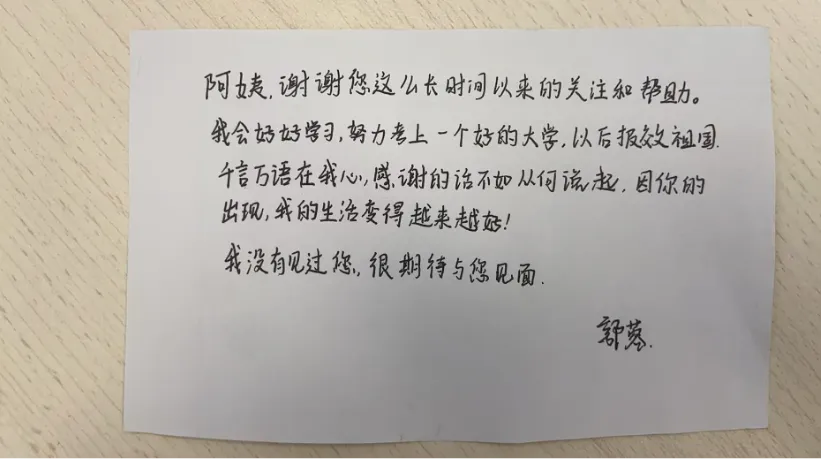 阿姨，谢谢您这么长时间以来的关注和帮助。
我会好好学习，努力考上一个好的大学，以后报效祖国.
千言万语在我心，感谢的话不如从何说起，因你的
出现，我的生活变得越来越好！
我没有见过您，很期待与您见面.